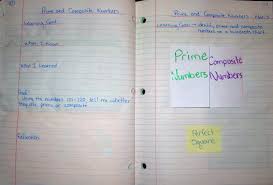 Prime and Composite Numbers
Learning Goal:
What I Know
What I Learned
Goal:
Using the numbers 101-120, tell me whether
they are prime or composite
Reflection
Prime and Composite Numbers
Learning Goal → identify prime and composite
numbers on a hundreds chart
Prime
Numbers
Composite
Numbers
Perfect
Square